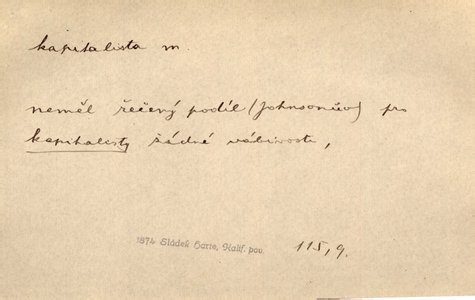 kapitalista m.
neměl řečený podíl (Johnsonův) pro
kapitalisty žádné vábivosti,
1874 Sládek Harte, Kalif. pov. 115,9.